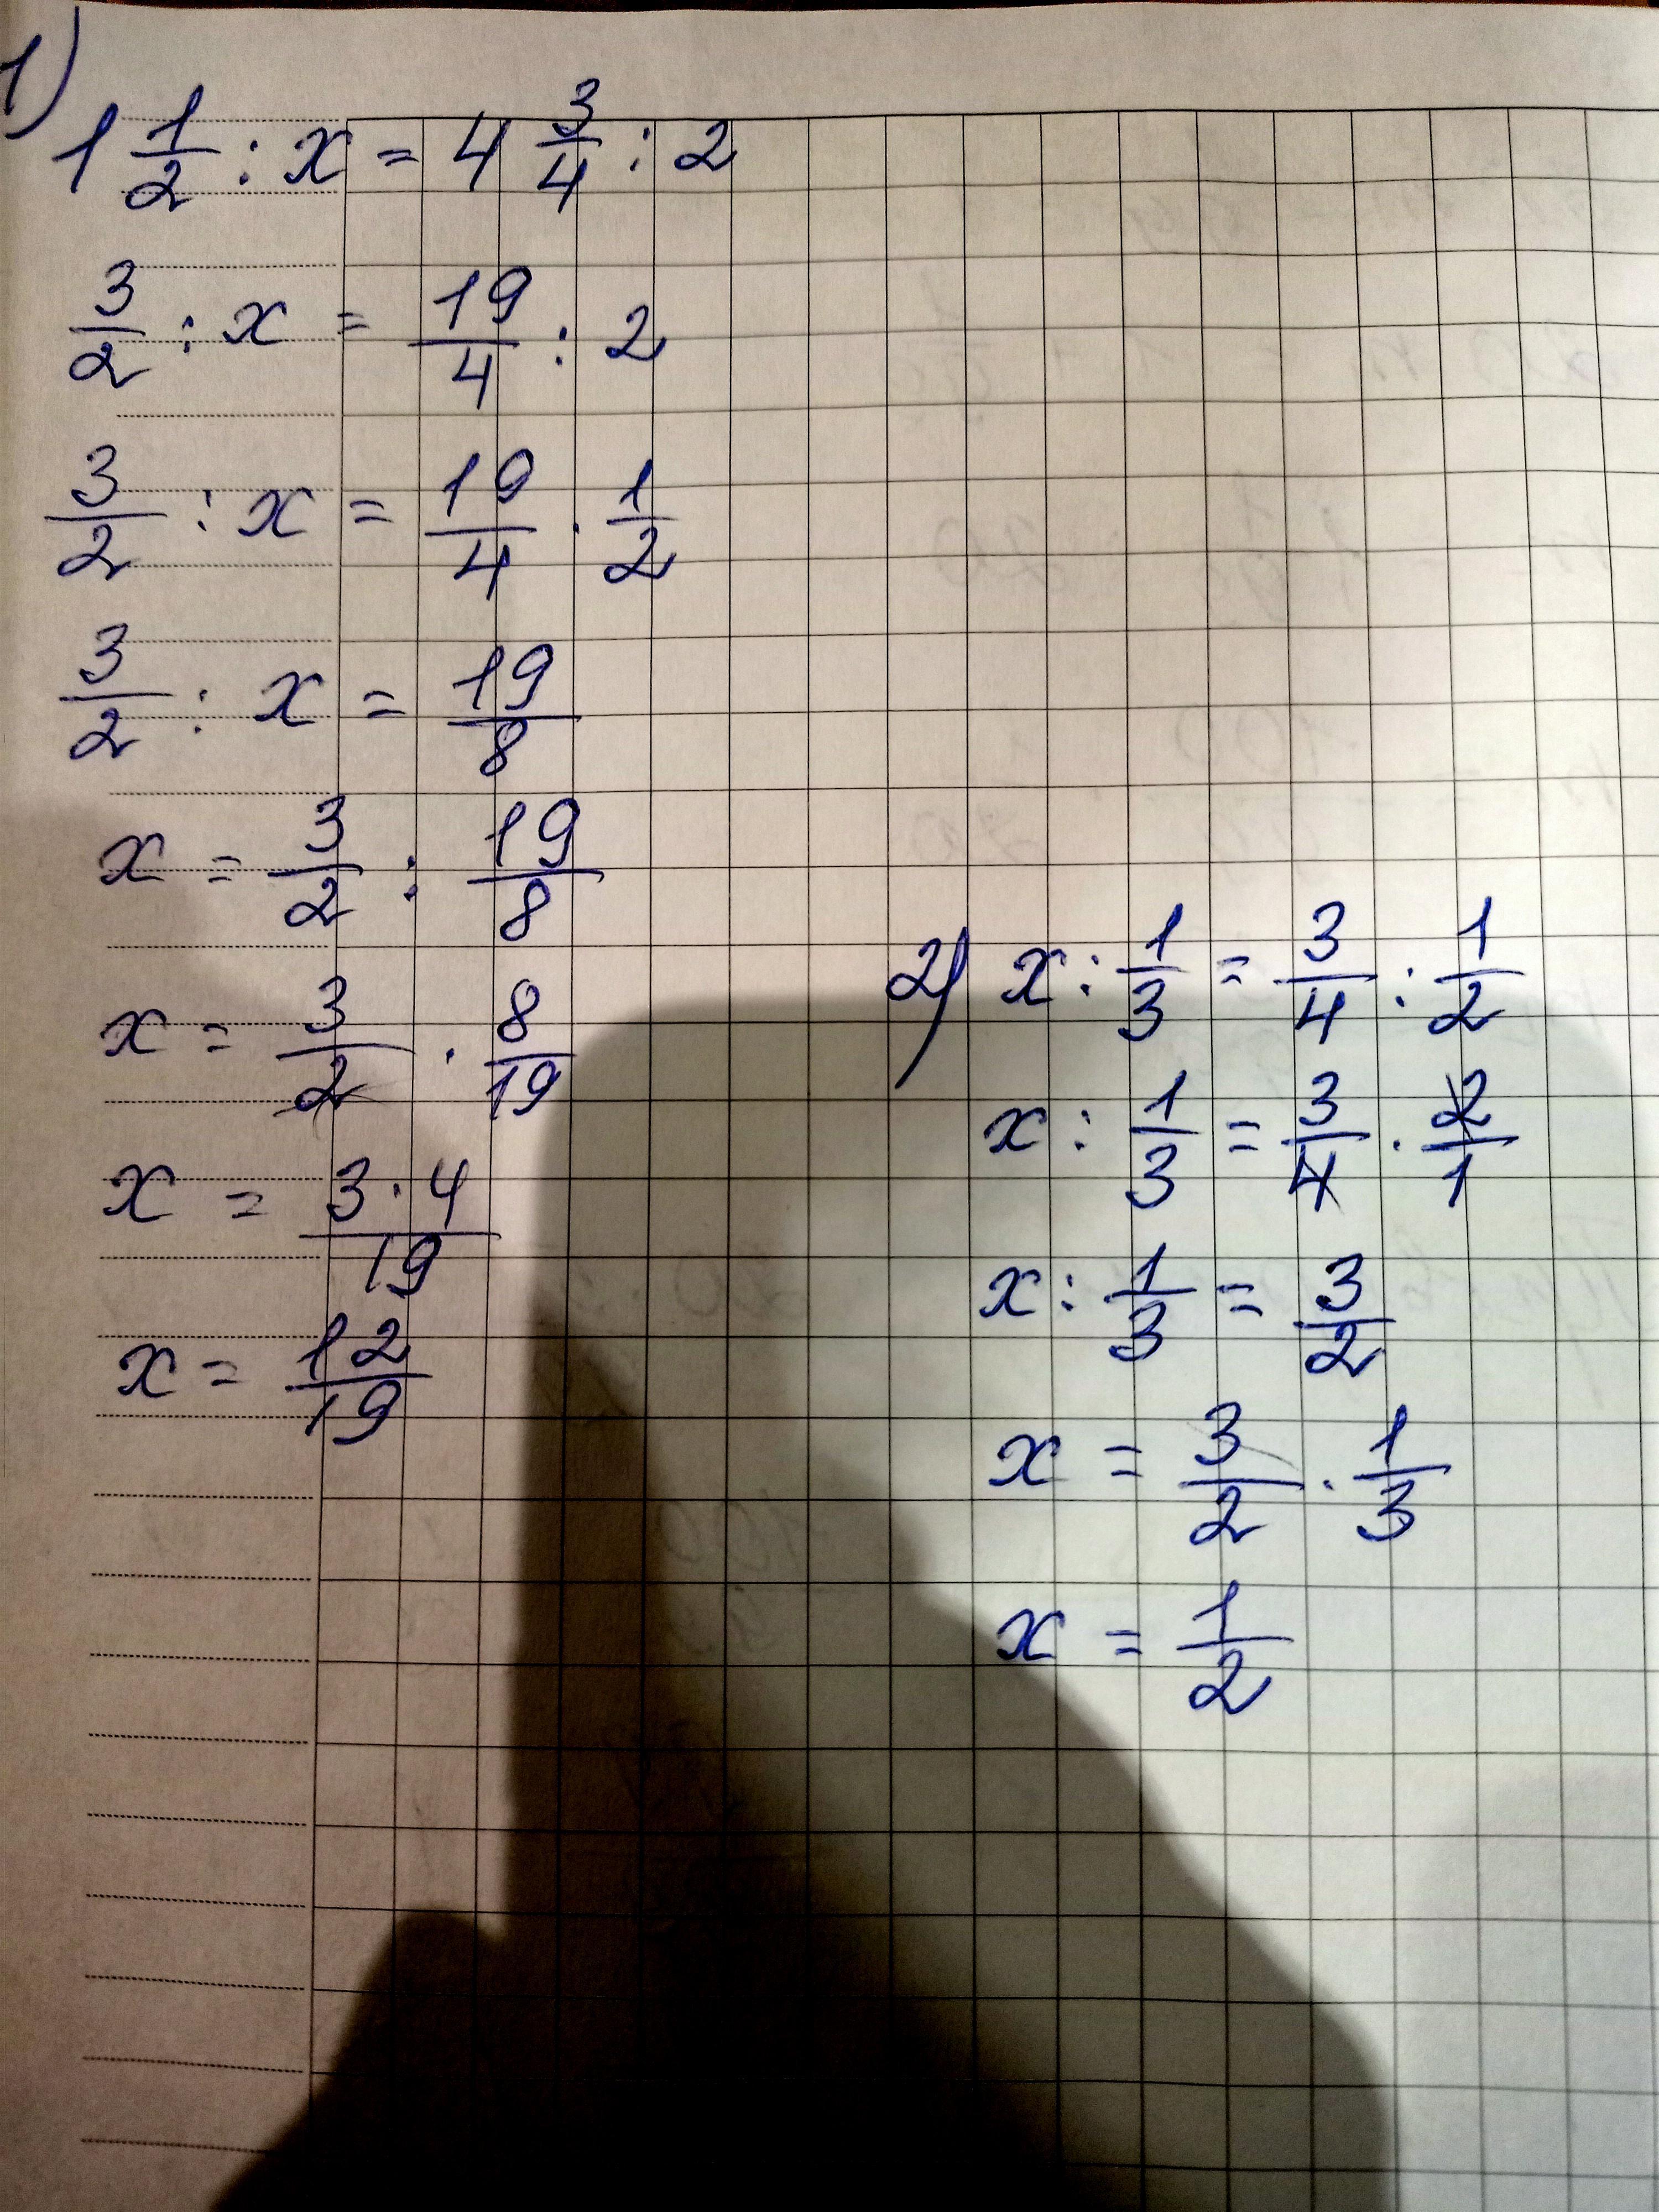 1)
1 1/2 : x = 4 3/4 : 2
3/2 : x = 19/4 : 2
3/2 : x = 19/4 · 1/2
3/2 : x = 19/8
x = 3/2 : 19/8
x = 3/2 · 8/19
x = 3·4/19
x = 12/19
2) x : 1/3 = 3/4 : 1/2
x : 1/3 = 3/4 · 2/1
x : 1/3 = 3/2
x = 3/2 · 1/3
x = 1/2